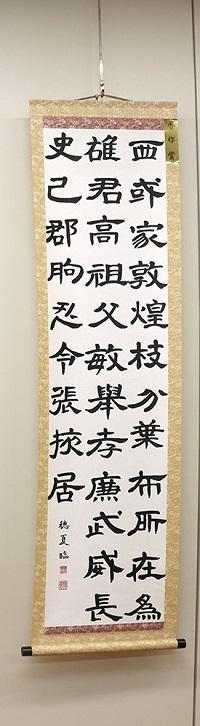 秀作賞
西或家敦煌枝分葉布所在為
雄君高祖父敏舉孝廉武威長
史巴郡朐忍令張掖居
夏臨